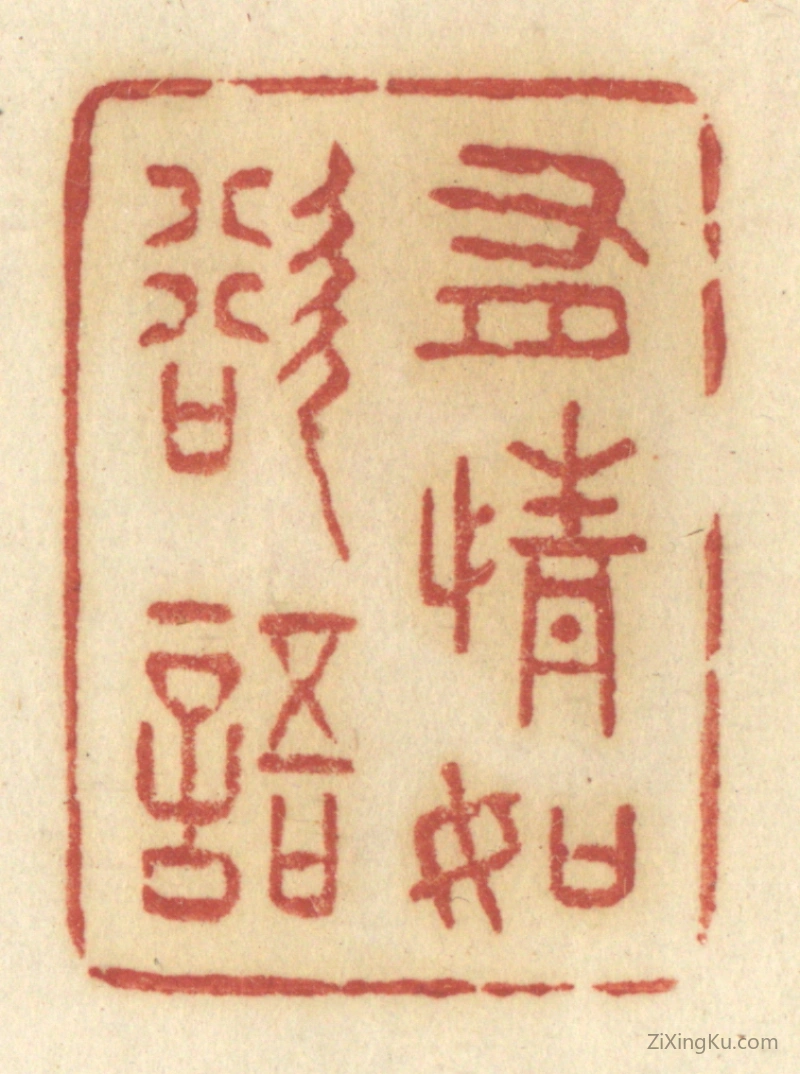 有情如
欲語
ZiXingKu.com